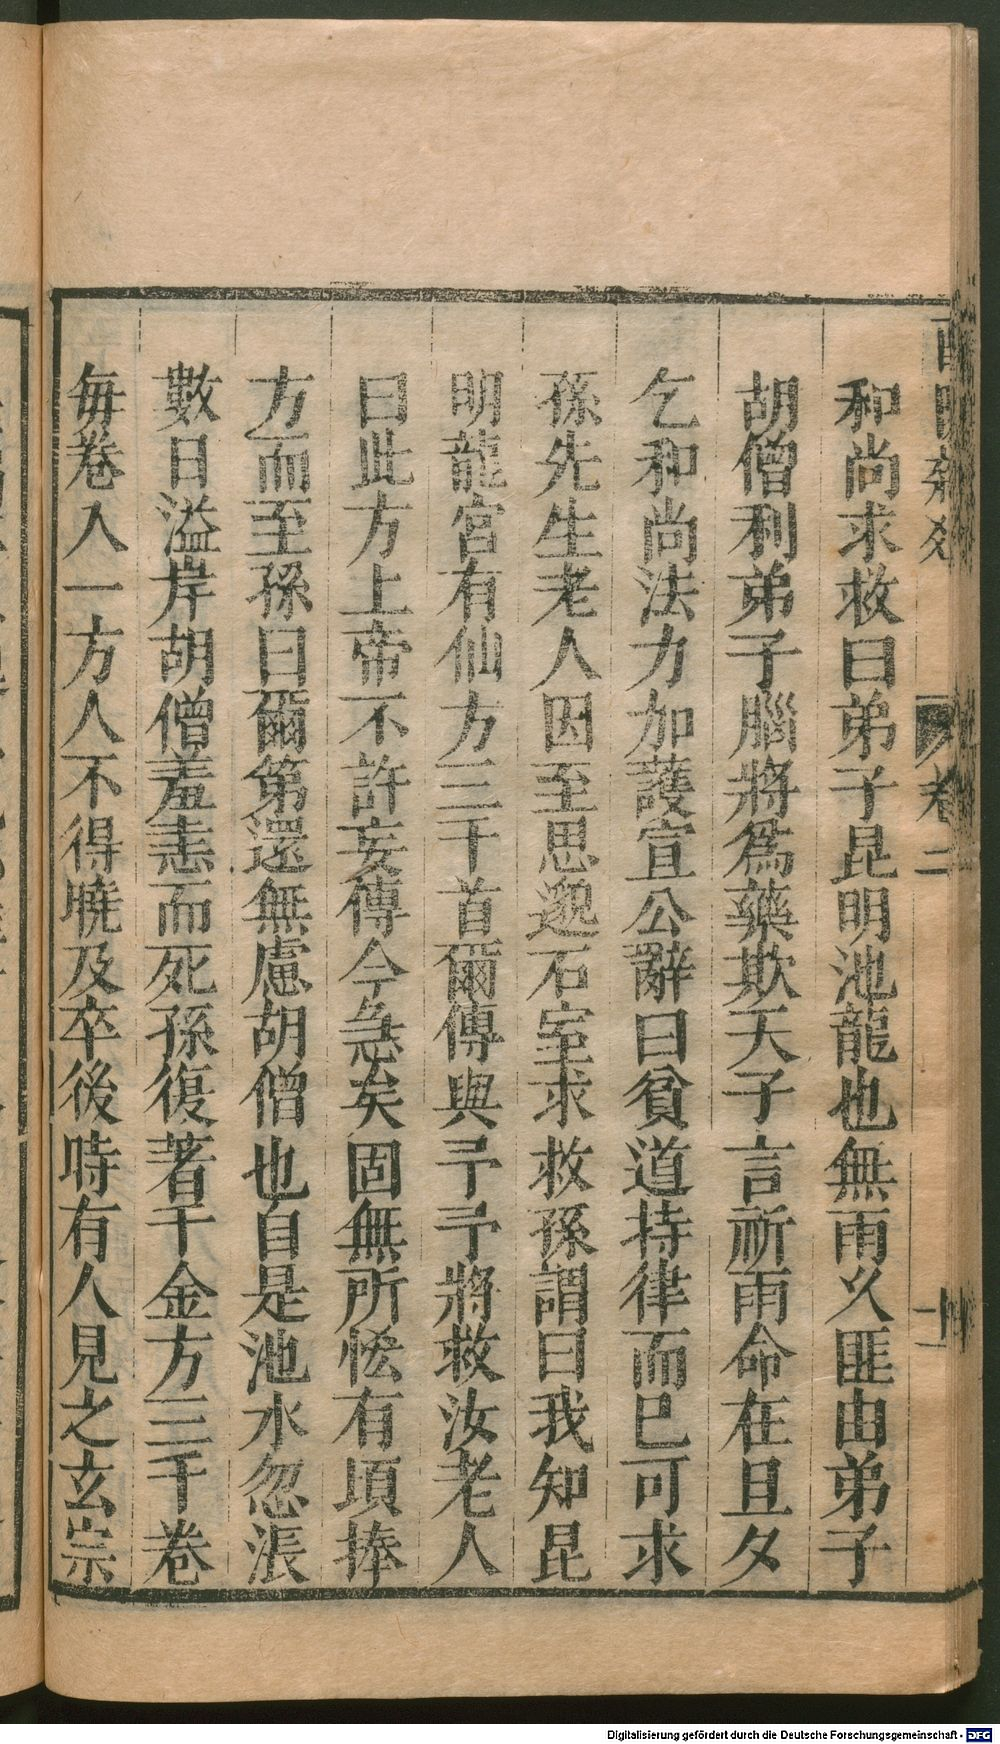 和尚求救曰弟子昆明池龍也無雨乆匪由弟子
胡僧利弟子腦將爲藥欺天子言祈雨命在旦夕
乞和尚法力加護宣公辭曰貧道持律而已可求
孫先生老人因至思邈石室求救孫謂曰我知昆
明龍宮有仙方三千首爾傳與予予將救汝老人
曰此方上帝不許妄傳今急矣固無所恡有頃捧
方而至孫曰爾第還無慮胡僧也自是池水忽漲
數日溢岸胡僧羞恚而死孫復著千金方三千卷
每卷入一方人不得曉及卒後時有人見之玄宗
酉陽雜俎
卷二
十一
Digitalisierung gefördert durch die Deutsche Forschungsgemeinschaft - DFG